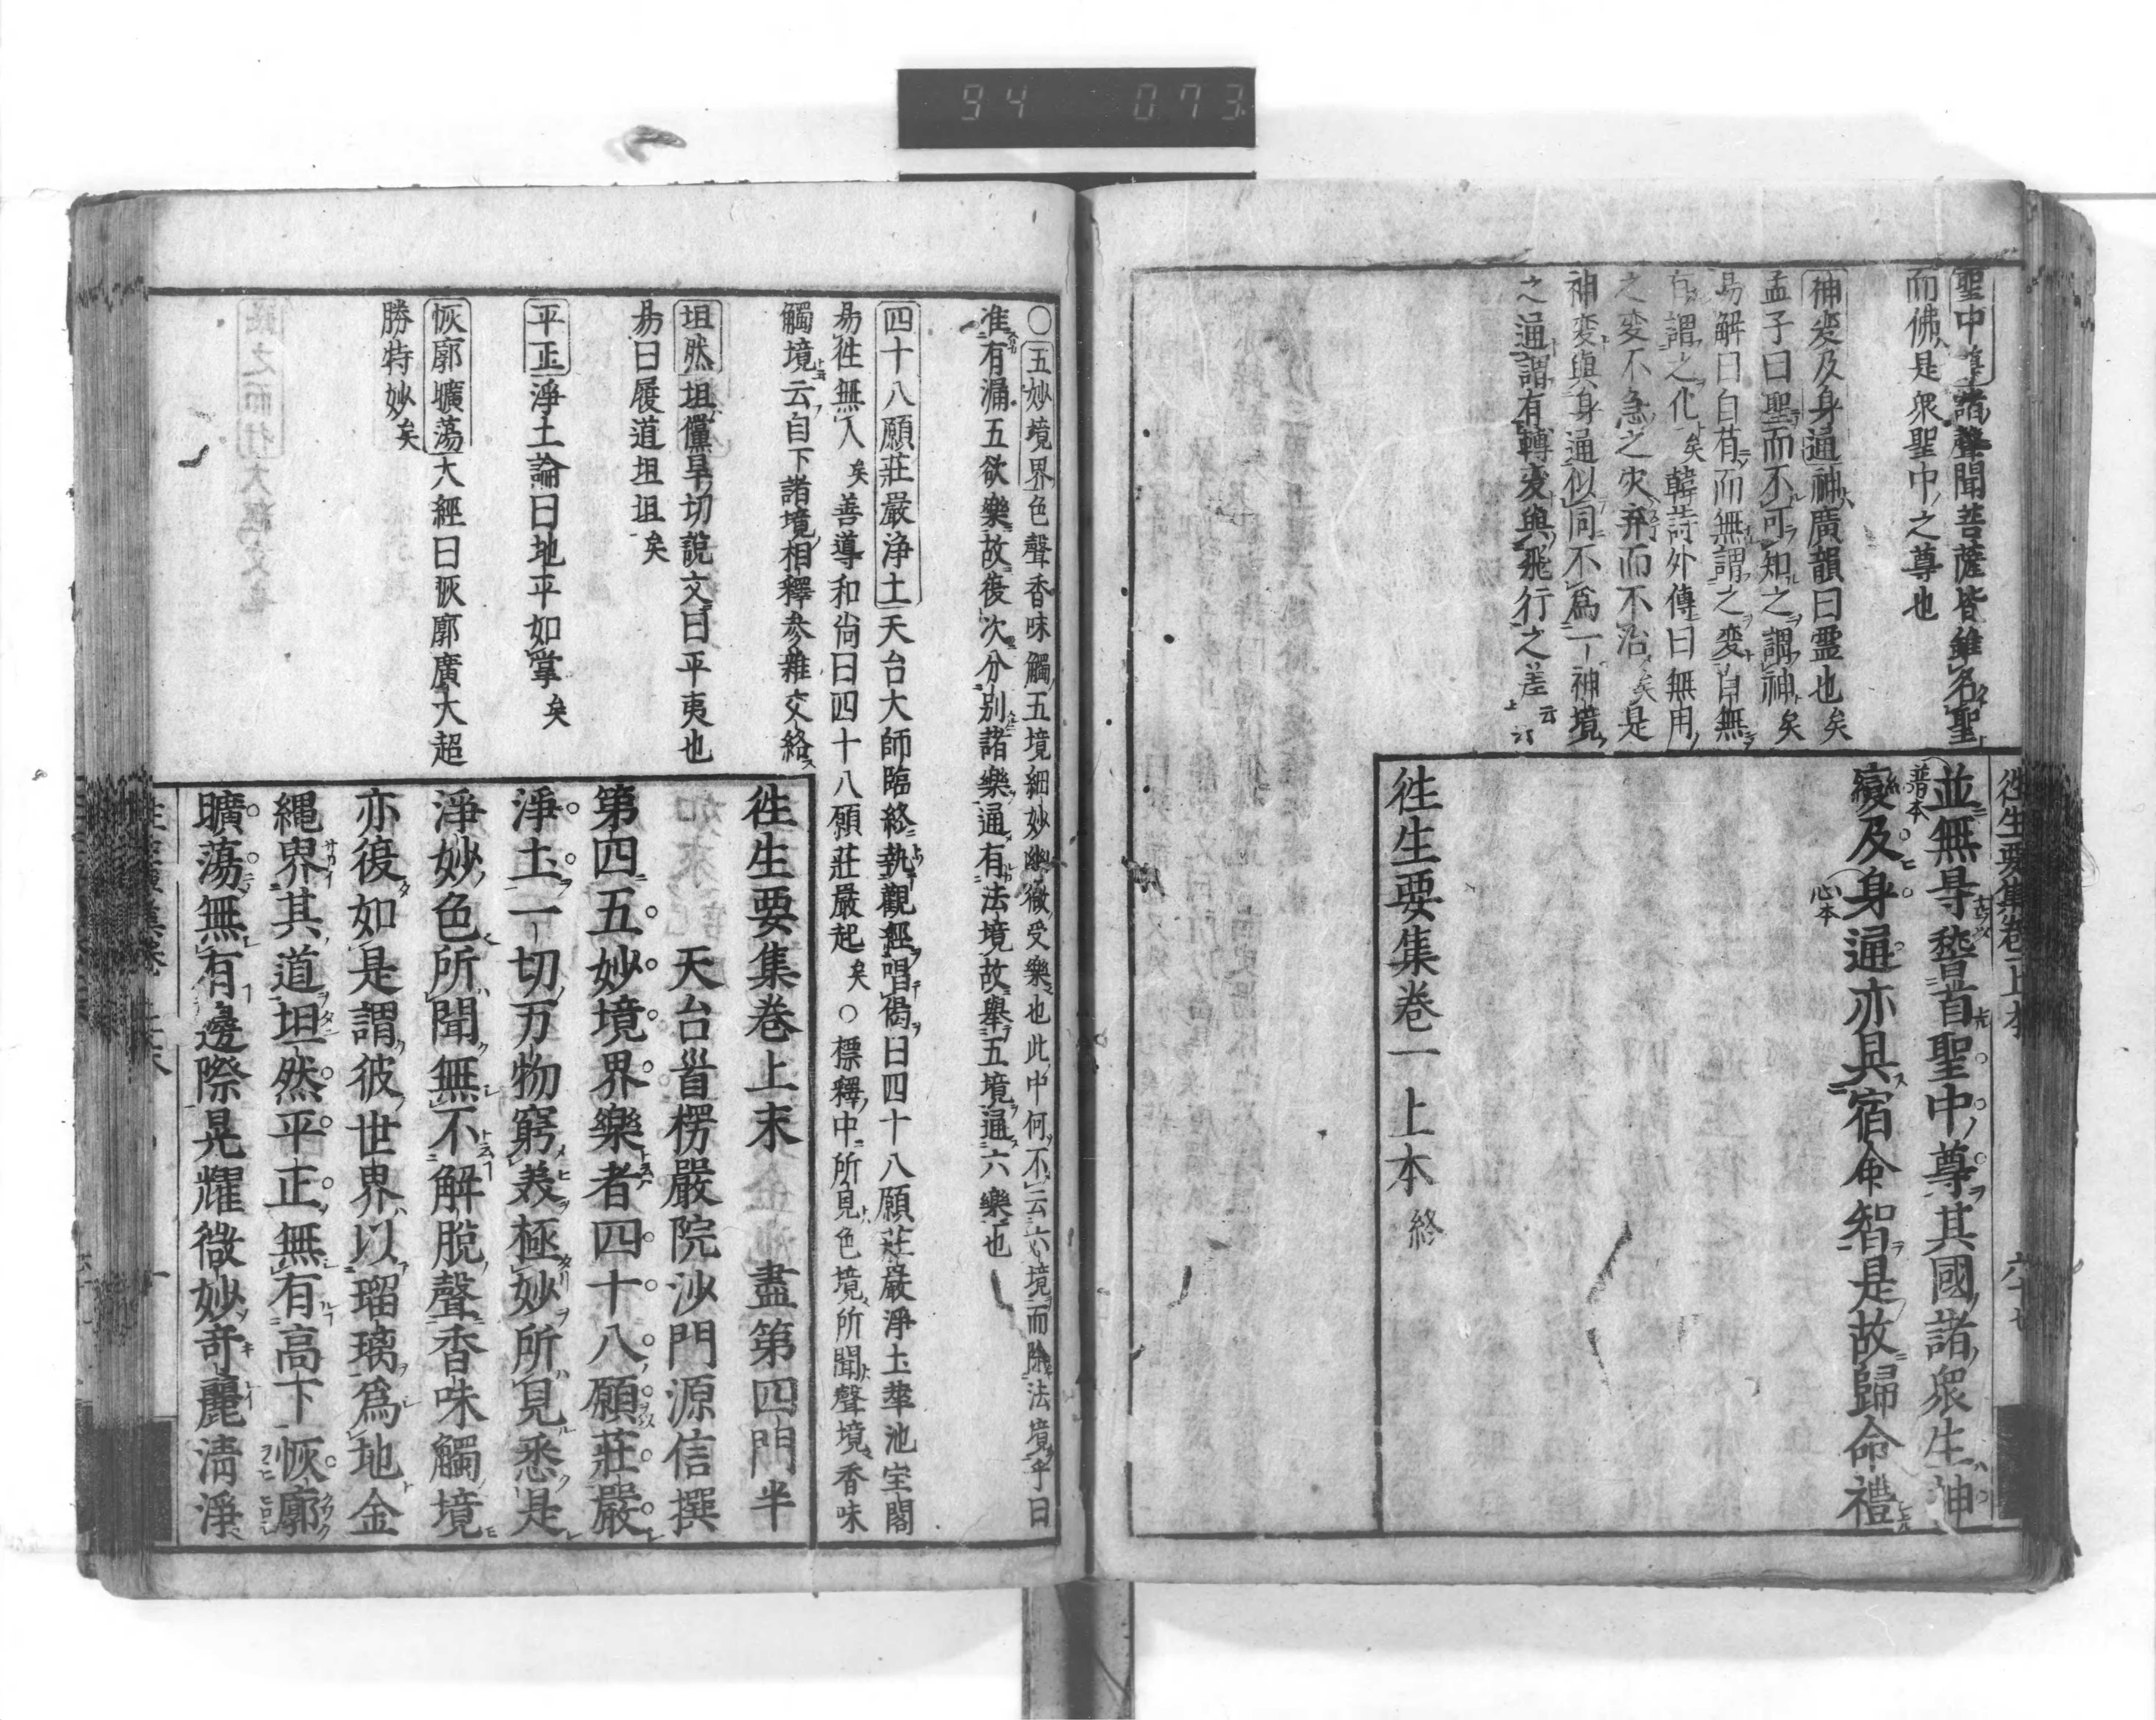 聖中尊諸聲聞菩薩皆雖名聖
而佛是衆聖中之尊也
神変及身通神廣韻曰霊也矣
孟子曰聖而不可知之謂神矣
易解曰自有而無謂之変自無
有謂之化矣韓詩外傳曰無用
之変不急之灾弃而不治矣是
神変與身通似同不爲一神境
之通謂有轉変與飛行之差云
往生要集卷上本
並無㝵稽首聖中尊其國諸衆生神
普本
変及身通亦具宿命智是故歸命禮
心本
往生要集卷一上本 終
○五妙境界色聲香味觸五境細妙幽微受樂也此中何不云六境而除法境乎曰
准有漏五欲樂故後次分別諸樂通有法境故舉五境通六樂也
四十八願莊嚴浄土天台大師臨終執觀經唱偈曰四十八願莊嚴淨土華池宝閣
易往無人矣善導和尚曰四十八願莊嚴起矣○標釋中所見色境所聞聲境香味
觸境云自下諸境相釋参雜交絡
坦然坦儻旱切說文曰平夷也
易曰履道坦坦矣
平正淨土論曰地平如掌矣
恢廓曠荡大經曰恢廓廣大超
勝特妙矣
往生要集巻上末 盡第四門半
天台首楞嚴院沙門源信撰
第四五妙境界樂者四十八願莊嚴
淨土一切万物窮美極妙所見悉是
淨妙色所聞無不解脫聲香味觸境
亦復如是謂彼世界以瑠璃爲地金
縄界其道坦然平正無有高下恢廓
曠荡無有邊際晃耀微妙竒麗淸淨